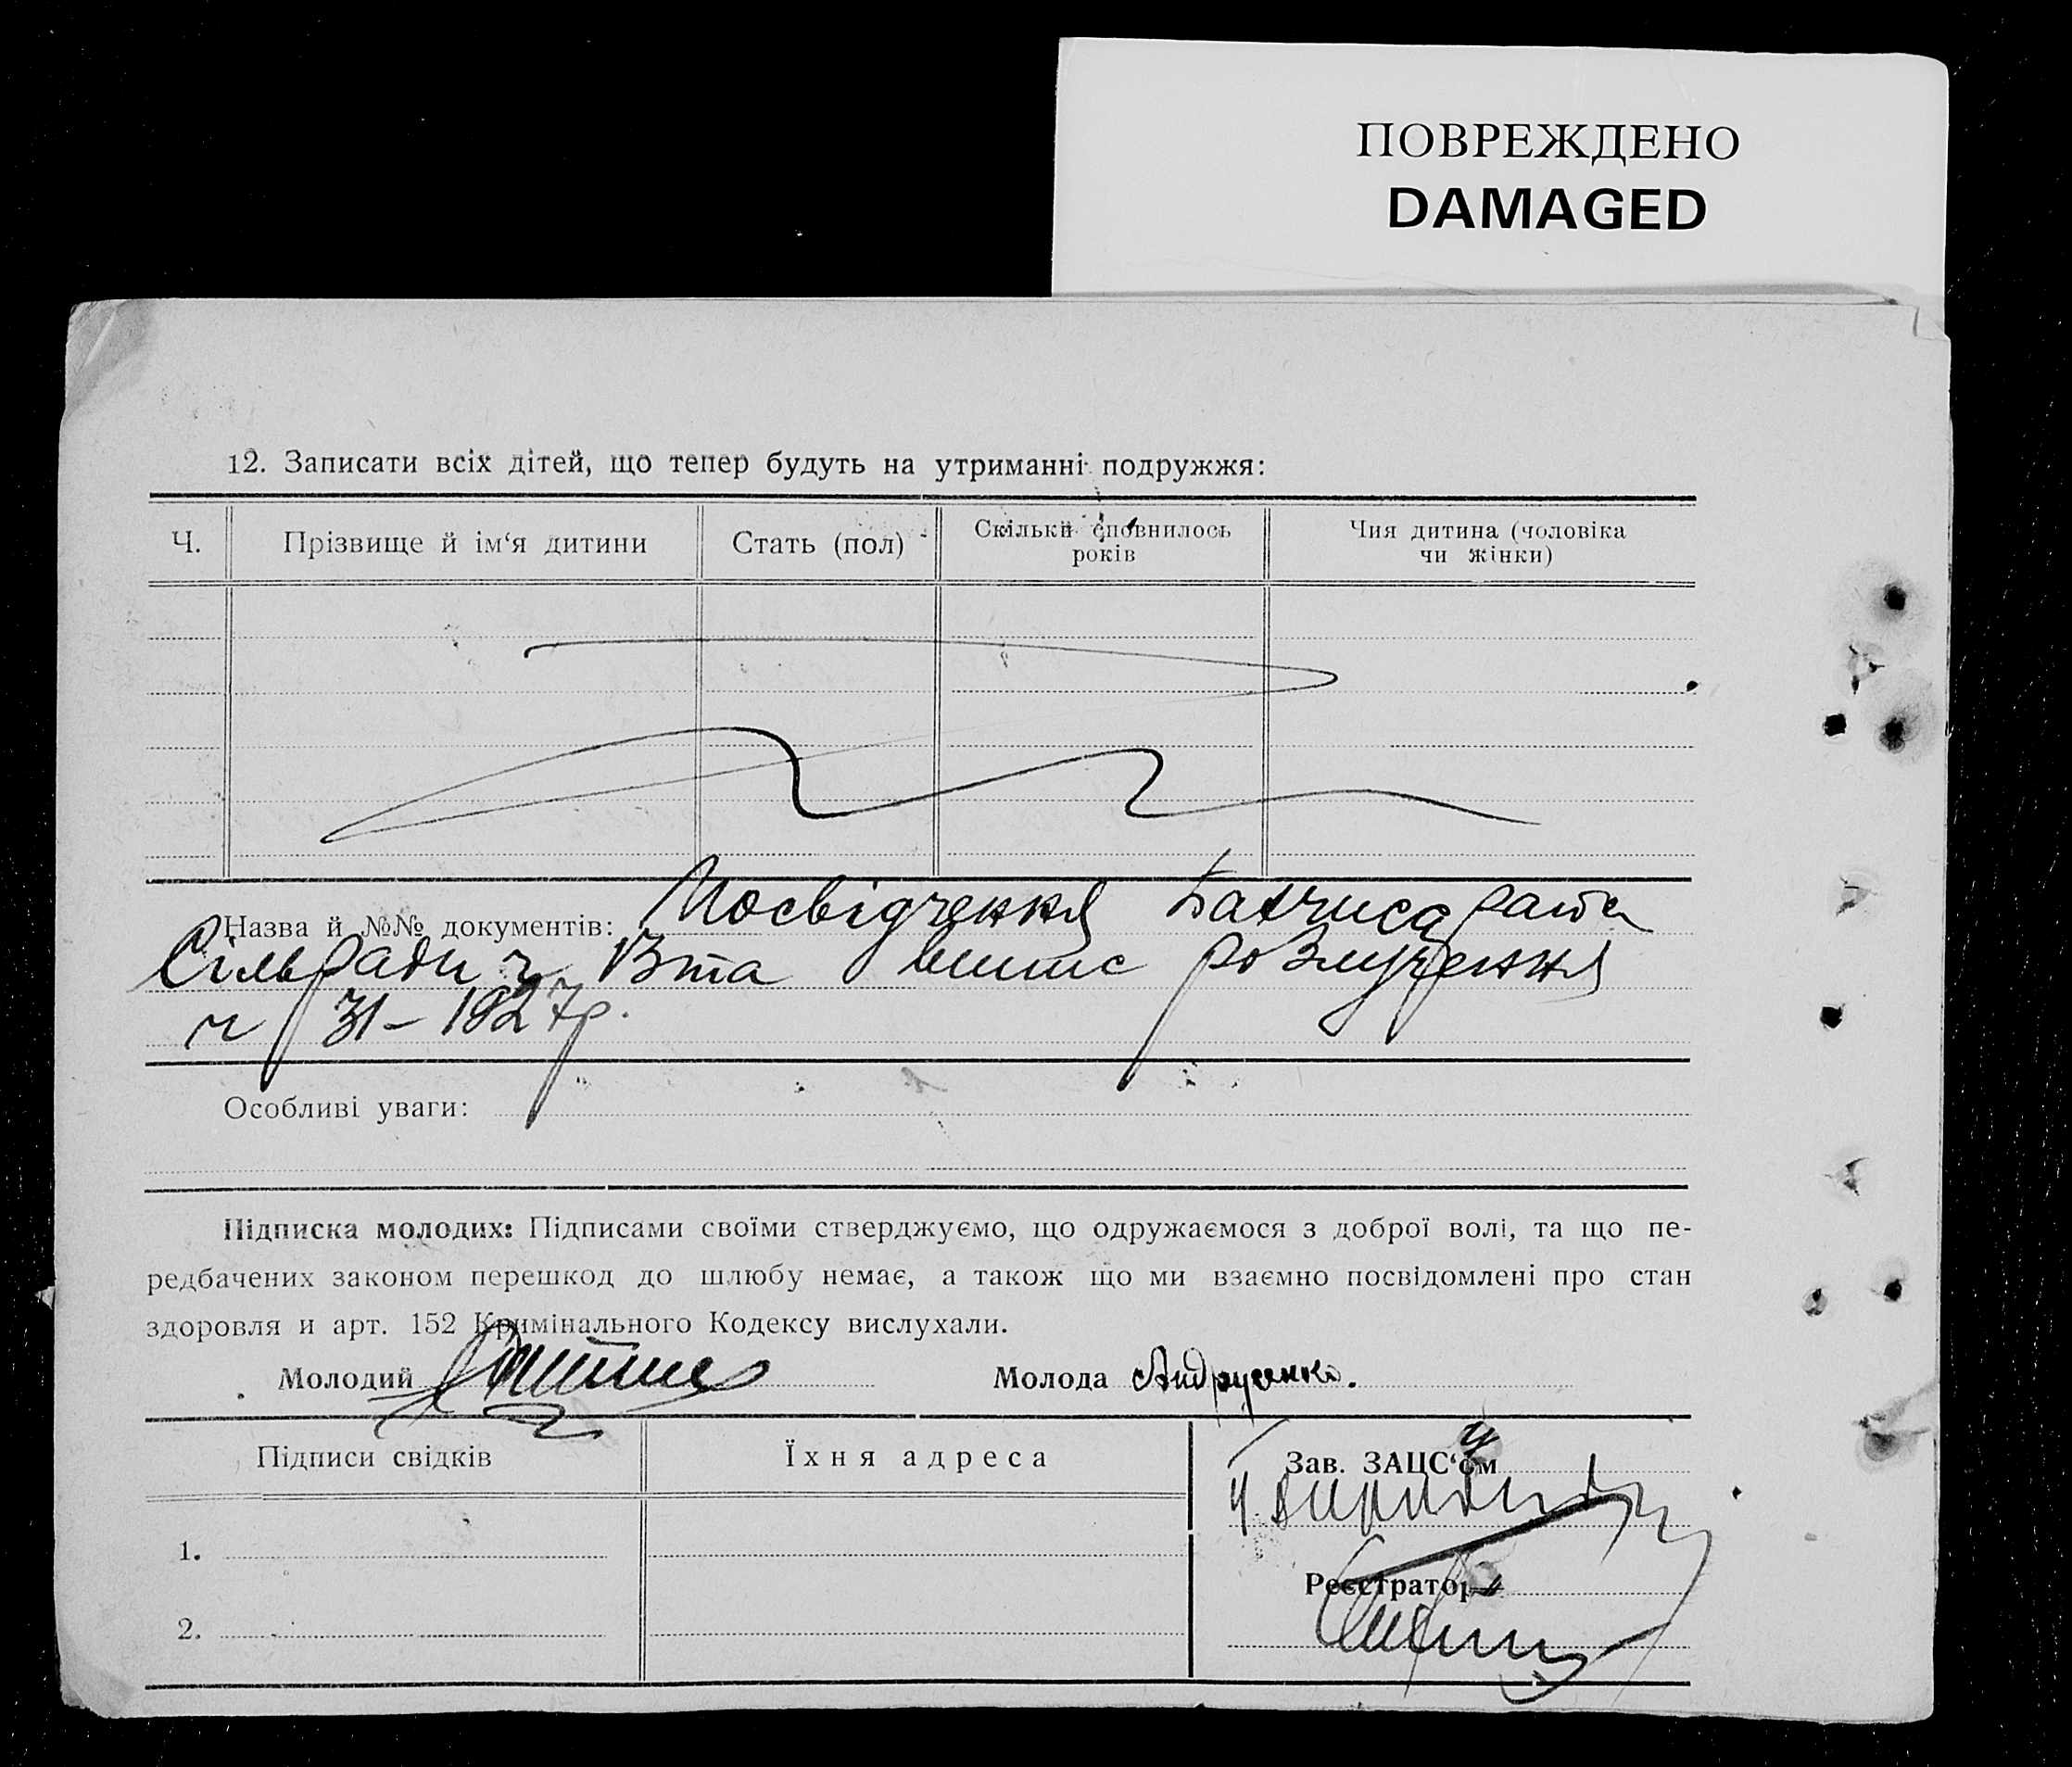 ПОВРЕЖДЕНО
DAMAGED
12. Записати всіх дітей, що тепер будуть на утриманні подружжя:
Ч.
Прізвище й ім‘я дитини
Стать (пол)
Скільки сповнилось
років
Чия дитина (чоловіка
чи жінки)
Назва й №№ документів: Посвідчення
Сільради ч та розлучення
ч 31 – 1927р.
Особливі уваги:
Підписка молодих: Підписами своїми стверджуємо, що одружаємося з доброї волі, та що пе-
редбачених законом перешкод до шлюбу немає, а також що ми взаємно посвідомлені про стан
здоровля и арт. 152 Кримінального Кодексу вислухали.
Молодий
Молода Андрусенко.
Підписи свідків
Їхня адреса
Зав. ЗАЦС‘ом
1.
Реєстратор
2.